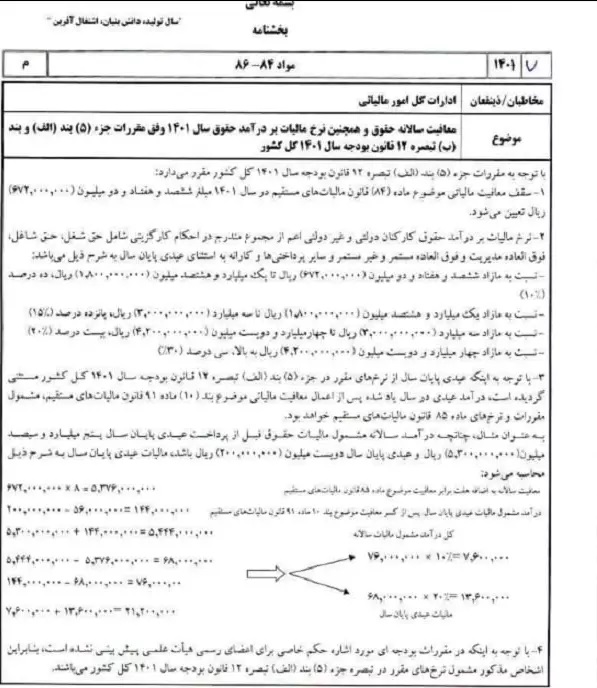 بسمه تعالی
"سال تولید، دانش بنیان، اشتغال آفرین"
بخشنامه
۷ ۱۴۰۱ مواد ۸۴-۸۶ م
مخاطبان/ذینفعان ادارات کل امور مالیاتی
موضوع معافیت سالانه حقوق و همچنین نرخ مالیات بر درآمد حقوق سال ۱۴۰۱ وفق مقررات جزء (۵) بند (الف) و بند
(ب) تبصره ۱۲ قانون بودجه سال ۱۴۰۱ کل کشور
با توجه به مقررات جزء (۵) بند (الف) تبصره ۱۲ قانون بودجه سال ۱۴۰۱ کل کشور مقرر می‌دارد:
۱- سقف معافیت مالیاتی موضوع ماده (۸۴) قانون مالیات‌های مستقیم در سال ۱۴۰۱ مبلغ ششصد و هفتاد و دو میلیون (۶۷۲,۰۰۰,۰۰۰)
ریال تعیین می‌شود.
۲- نرخ مالیات بر درآمد حقوق کارکنان دولتی و غیر دولتی اعم از مجموع مندرج در احکام کارگزینی شامل حق شغل، حق شاغل،
فوق العاده مدیریت و فوق العاده مستمر و غیر مستمر و سایر پرداختی‌ها و کارانه به استثنای عیدی پایان سال به شرح ذیل می‌باشد:
-نسبت به مازاد ششصد و هفتاد و دو میلیون (۶۷۲,۰۰۰,۰۰۰) ریال تا یک میلیارد و هشتصد میلیون (۱,۸۰۰,۰۰۰,۰۰۰) ریال، ده درصد
(۱۰٪)
-نسبت به مازاد یک میلیارد و هشتصد میلیون (۱,۸۰۰,۰۰۰,۰۰۰) ریال تا سه میلیارد (۳,۰۰۰,۰۰۰,۰۰۰) ریال، پانزده درصد (۱۵٪)
-نسبت به مازاد سه میلیارد (۳,۰۰۰,۰۰۰,۰۰۰) ریال تا چهار میلیارد و دویست میلیون (۴,۲۰۰,۰۰۰,۰۰۰) ریال، بیست درصد (۲۰٪)
-نسبت به مازاد چهار میلیارد و دویست میلیون (۴,۲۰۰,۰۰۰,۰۰۰) ریال به بالا، سی درصد (۳۰٪)
۳- با توجه به اینکه عیدی پایان سال از نرخ‌های مقرر در جزء (۵) بند (الف) تبصره ۱۲ قانون بودجه سال ۱۴۰۱ کل کشور مستثنی
گردیده است، درآمد عیدی در سال یاد شده پس از اعمال معافیت مالیاتی موضوع بند (۱۰) ماده ۹۱ قانون مالیات‌های مستقیم، مشمول
مقررات و نرخ‌های ماده ۸۵ قانون مالیات‌های مستقیم خواهد بود.
به عنوان مثال، چنانچه درآمد سالانه مشمول مالیات حقوق قبل از پرداخت عیدی پایان سال پنج میلیارد و سیصد
میلیون (۵,۳۰۰,۰۰۰,۰۰۰) ریال و عیدی پایان سال دویست میلیون (۲۰۰,۰۰۰,۰۰۰) ریال باشد، مالیات عیدی پایان سال به شرح ذیل
محاسبه می‌شود:
معافیت سالانه به اضافه هفت برابر معافیت موضوع ماده ۸۵ قانون مالیات‌های مستقیم ۶۷۲,۰۰۰,۰۰۰ × ۸ = ۵,۳۷۶,۰۰۰,۰۰۰
درآمد مشمول مالیات عیدی پایان سال، پس از کسر معافیت موضوع بند ۱۰ ماده ۹۱ قانون مالیات‌های مستقیم ۲۰۰,۰۰۰,۰۰۰ - ۵۶,۰۰۰,۰۰۰ = ۱۴۴,۰۰۰,۰۰۰
کل درآمد مشمول مالیات سالانه ۵,۳۰۰,۰۰۰,۰۰۰ + ۱۴۴,۰۰۰,۰۰۰ = ۵,۴۴۴,۰۰۰,۰۰۰
۵,۴۴۴,۰۰۰,۰۰۰ - ۵,۳۷۶,۰۰۰,۰۰۰ = ۶۸,۰۰۰,۰۰۰
۷۶,۰۰۰,۰۰۰ × ۱۰٪ = ۷,۶۰۰,۰۰۰
۱۴۴,۰۰۰,۰۰۰ - ۶۸,۰۰۰,۰۰۰ = ۷۶,۰۰۰,۰۰۰
۶۸,۰۰۰,۰۰۰ × ۲۰٪ = ۱۳,۶۰۰,۰۰۰
مالیات عیدی پایان سال ۷,۶۰۰,۰۰۰ + ۱۳,۶۰۰,۰۰۰ = ۲۱,۲۰۰,۰۰۰
۴- با توجه به اینکه در مقررات بودجه ای مورد اشاره حکم خاصی برای اعضای رسمی هیأت علمی پیش بینی نشده است، بنابراین
اشخاص مذکور مشمول نرخ‌های مقرر در تبصره جزء (۵) بند (الف) تبصره ۱۲ قانون بودجه سال ۱۴۰۱ کل کشور می‌باشند.